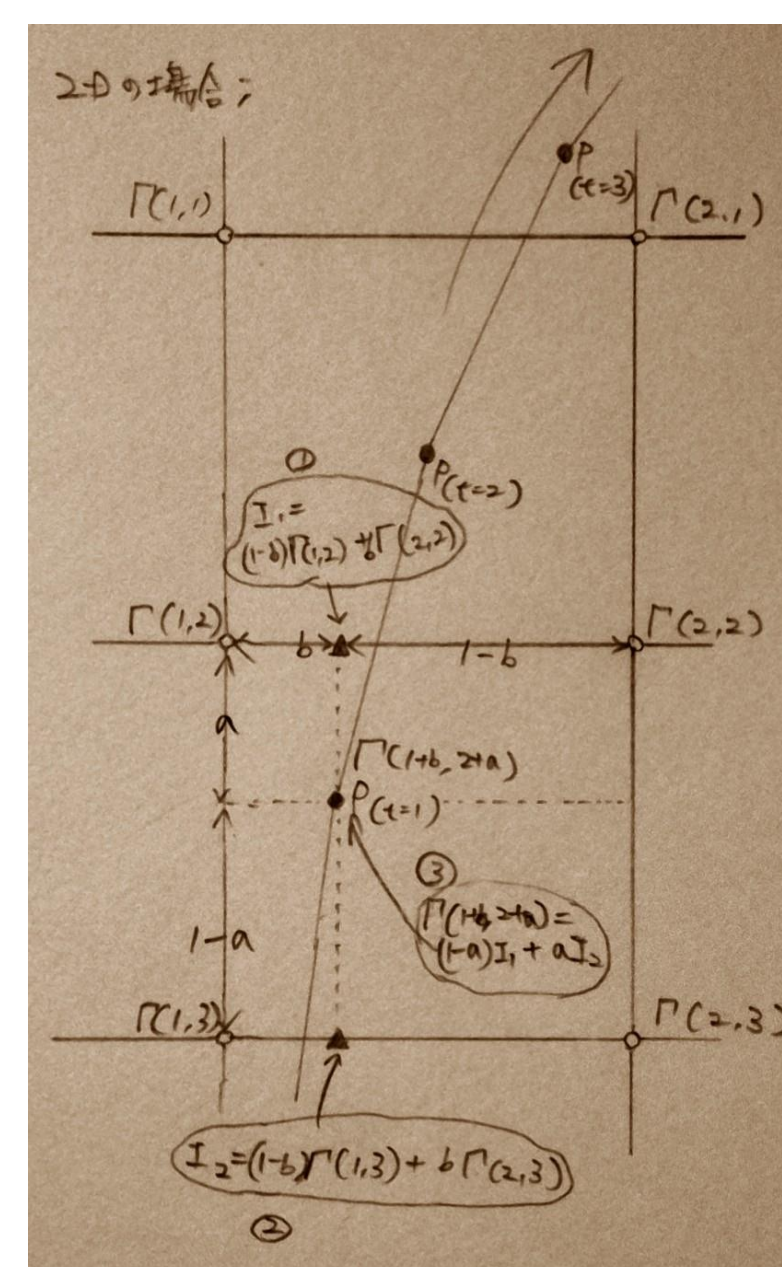 2-Dの場合;
P
(t=3)
Γ(1,1)
Γ(2,1)
①
P(t=2)
I₁=
(1-b)Γ(1,2)+bΓ(2,2)
Γ(1,2)
Γ(2,2)
b
1-b
a
Γ(1+b, 2+a)
P(t=1)
③
Γ(1+b,2+a)=
(1-a)I₁+aI₂
1-a
Γ(1,3)
Γ(2,3)
I₂=(1-b)Γ(1,3)+bΓ(2,3)
②